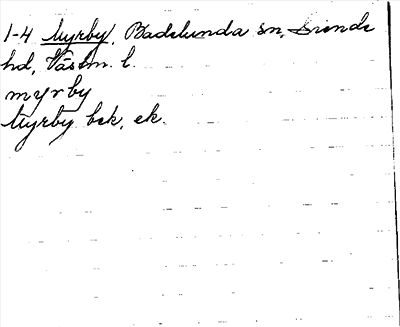 1-4 Myrby, Badelunda sn, Siende
hd, Västm. l.
myrby
Myrby bek. ek.